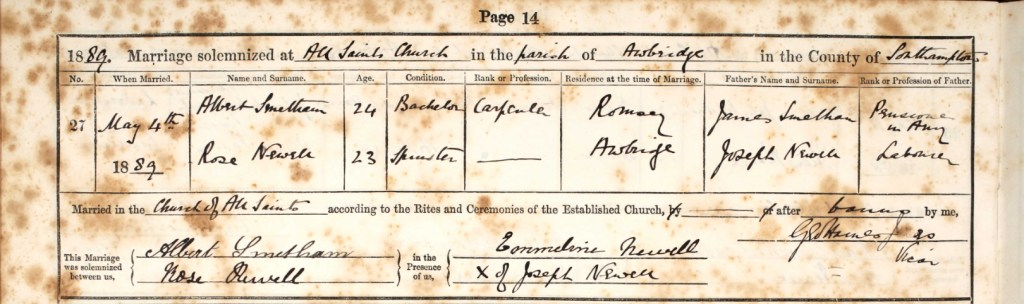 Page 14
1889. Marriage solemnized at All Saints Church in the parish of Awbridge in the County of Southampton
No. When Married. Name and Surname. Age. Condition. Rank or Profession. Residence at the time of Marriage. Father's Name and Surname. Rank or Profession of Father.
27 May 4th 1889 Albert Smetham 24 Bachelor Romsey James Smetham Pensioner in Army
Rose Newell 23 Spinster Awbridge Joseph Newell Labourer
Married in the Church of All Saints according to the Rites and Ceremonies of the Established Church, by or after banns by me,
This Marriage was solemnized between us, Albert Smetham in the Presence of us, Emmeline Newell Vicar
Rose Newell X of Joseph Newell